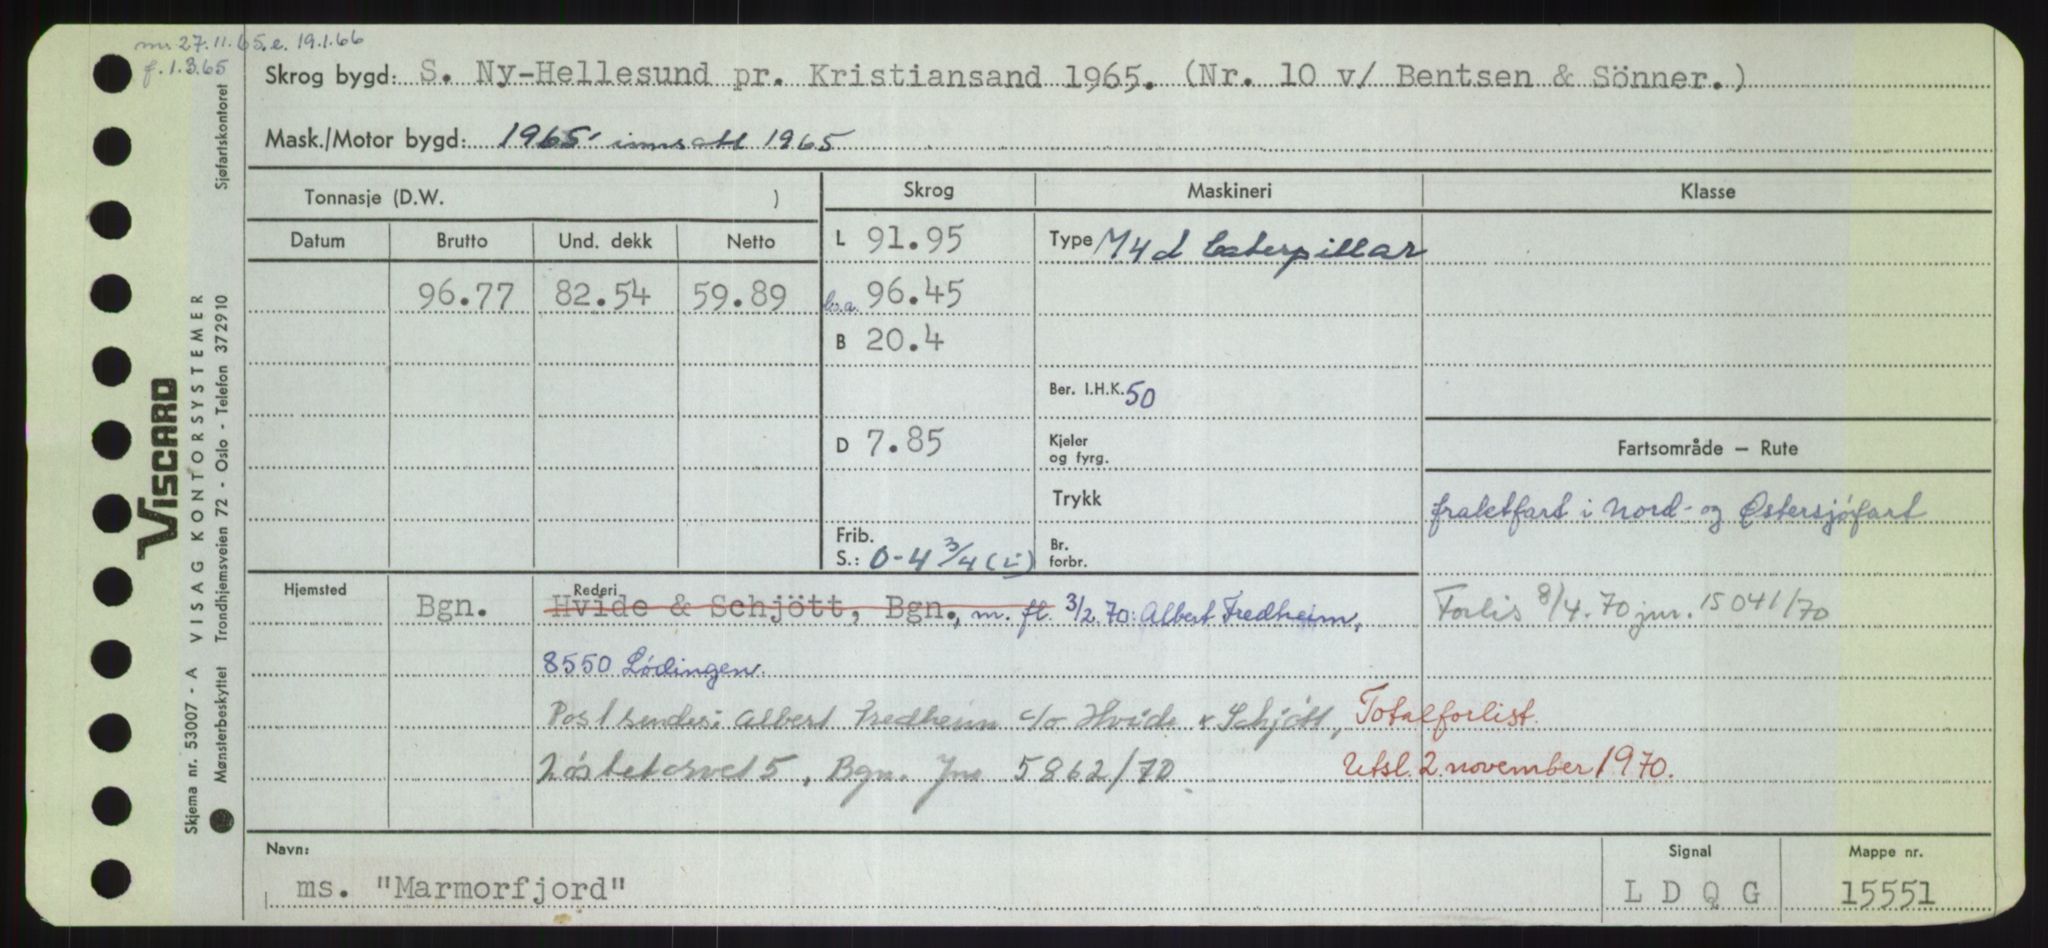 27.11.65.e. 19.1.66
f. 1.3.65
Skrog bygd: S. Ny-Hellesund pr. Kristiansand 1965. (Nr. 10 v/ Bentsen & Sönner.)
Mask./Motor bygd: 1965 innsatt 1965
Tonnasje (D.W. )
Skrog
Maskineri
Klasse
Datum
Brutto
Und. dekk
Netto
L 91.95
Type M4d Caterpillar
96.77 82.54 59.89
br.a. 96.45
B 20.4
Ber. I.H.K. 50
D 7.85
Kjeler
og fyrg.
Fartsområde – Rute
Trykk
fraktfart i Nord- og Østersjöfart
Frib.
S.: 0-4 3/4 (i)
Br.
forbr.
Hjemsted
Rederi
Bgn.
Hvide & Schjött, Bgn., m. fl. 3/2.70: Albert Fredheim,
Forlis 8/4.70 jnr. 15041/70
8550 Lödingen.
Post sendes: Albert Fredheim c/o Hvide & Schjött,
Totalforlist.
5, Bgn. Jnr 5862/70
Utsl. 2. november 1970.
Navn:
ms. "Marmorfjord"
Signal
L D Q G
Mappe nr.
15551
Viscard
VISAG KONTORSYSTEMER
Skjema nr. 53007 - A
Mønsterbeskyttet
Trondhjemsveien 72 - Oslo - Telefon 372910
Sjøfartskontoret